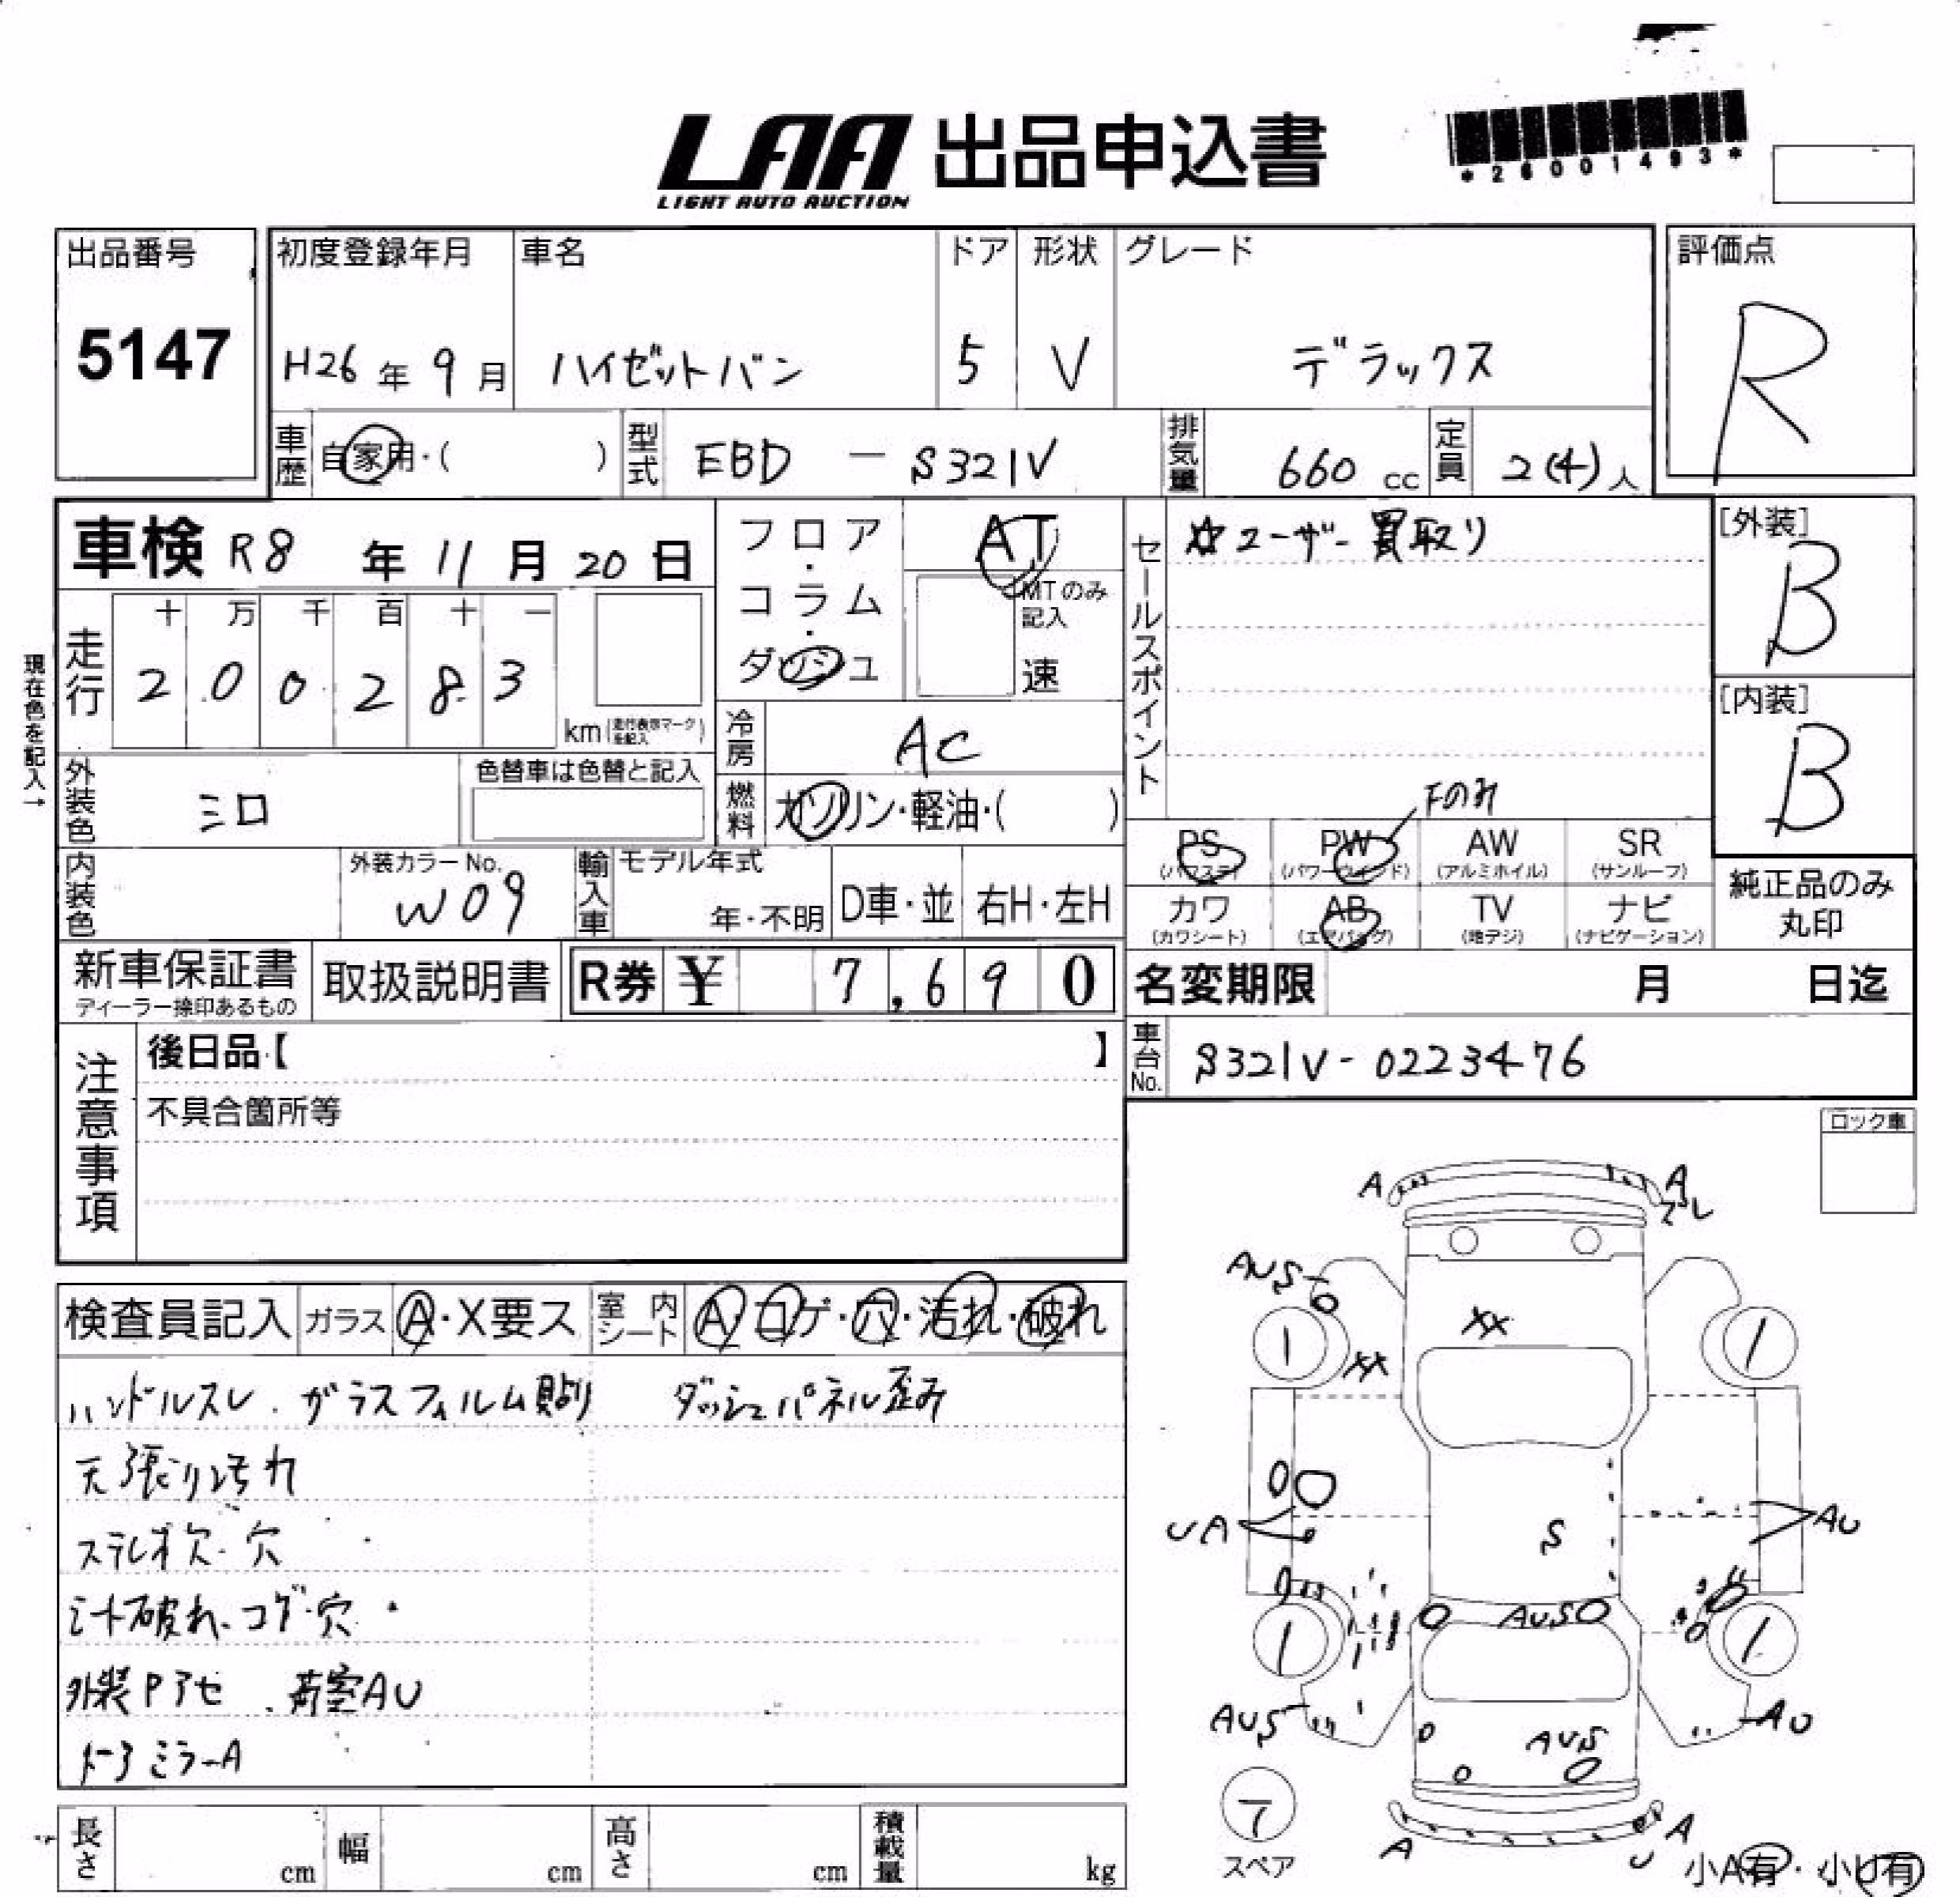 LAA 出品申込書
LIGHT AUTO AUCTION
*26001493*
出品番号
5147
初度登録年月
H26年9月
車名
ハイゼットバン
ドア
5
形状
V
グレード
デラックス
評価点
R
車歴 自家用・( )
型式 EBD - S321V
排気量 660 cc
定員 2(4)人
車検 R8年11月20日
フロア・コラム・ダッシュ
AT
MTのみ記入
速
セールスポイント
☆ユーザー買取り
[外装]
B
[内装]
B
現在色を記入→
走行
十 万 千 百 十 一
2 0 0 2 8 3
km(走行表示マークを記入)
冷房 AC
外装色 シロ
色替車は色替と記入
燃料 ガソリン・軽油・( )
Fのみ
PS (パワステ)
PW (パワーウインド)
AW (アルミホイル)
SR (サンルーフ)
カワ (カワシート)
AB (エアバッグ)
TV (地デジ)
ナビ (ナビゲーション)
純正品のみ
丸印
内装色
外装カラーNo.
W09
輸入車
モデル年式
年・不明
D車・並
右H・左H
新車保証書
ディーラー捺印あるもの
取扱説明書
R券 ¥ 7,690
名変期限 月 日迄
車台No. S321V-0223476
注意事項
後日品【 】
不具合箇所等
ロック車
検査員記入
ガラス A・X要ス
室内シート A・コゲ・穴・汚れ・破れ
ハンドルスレ.ガラスフィルム貼り ダッシュパネル歪み
天張り汚れ
ステレオ欠.穴
シート破れ.コゲ.穴
外装Pアセ.荷室AU
ドアミラーA
A
A
ズレ
AUS
XX
XX
UA
AU
S
AUS
AUS
AU
AUS
A
A
U
1
1
1
1
スペア
小A有・小U有
長さ cm
幅 cm
高さ cm
積載量 kg